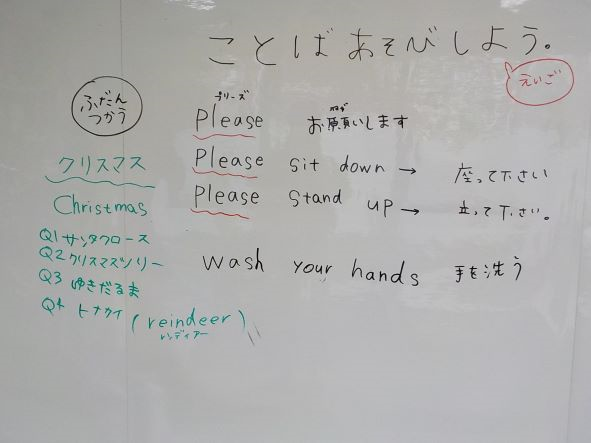 ことばあそびしよう。
えいご
ふだん
つかう
プリーズ
Please お願いします
ねが
Please sit down → 座って下さい
Please stand up → 立って下さい。
wash your hands 手を洗う
クリスマス
Christmas
Q1 サンタクロース
Q2 クリスマスツリー
Q3 ゆきだるま
Q4 トナカイ (reindeer)
レンディアー